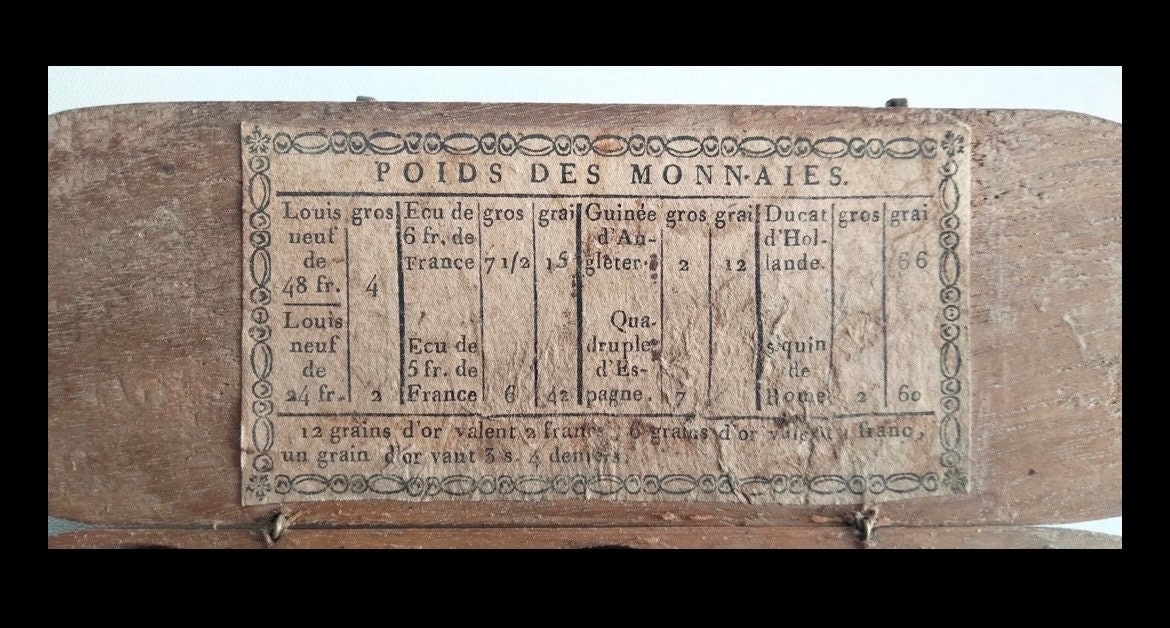 POIDS DES MONN·AIES.
Louis gros Ecu de gros grai Guinée gros grai Ducat gros grai
neuf 6 fr. de d'An- d'Hol-
de France 7 1/2 15 gleter. 2 12 lande. 66
48 fr. 4
Louis Qua-
neuf Ecu de druple s quin
de 5 fr. de d'Es- de
24 fr. 2 France 6 42 pagne. 7 Rome 2 60
12 grains d'or valent 2 francs, 6 grains d'or valent 1 franc,
un grain d'or vaut 3 s. 4 deniers